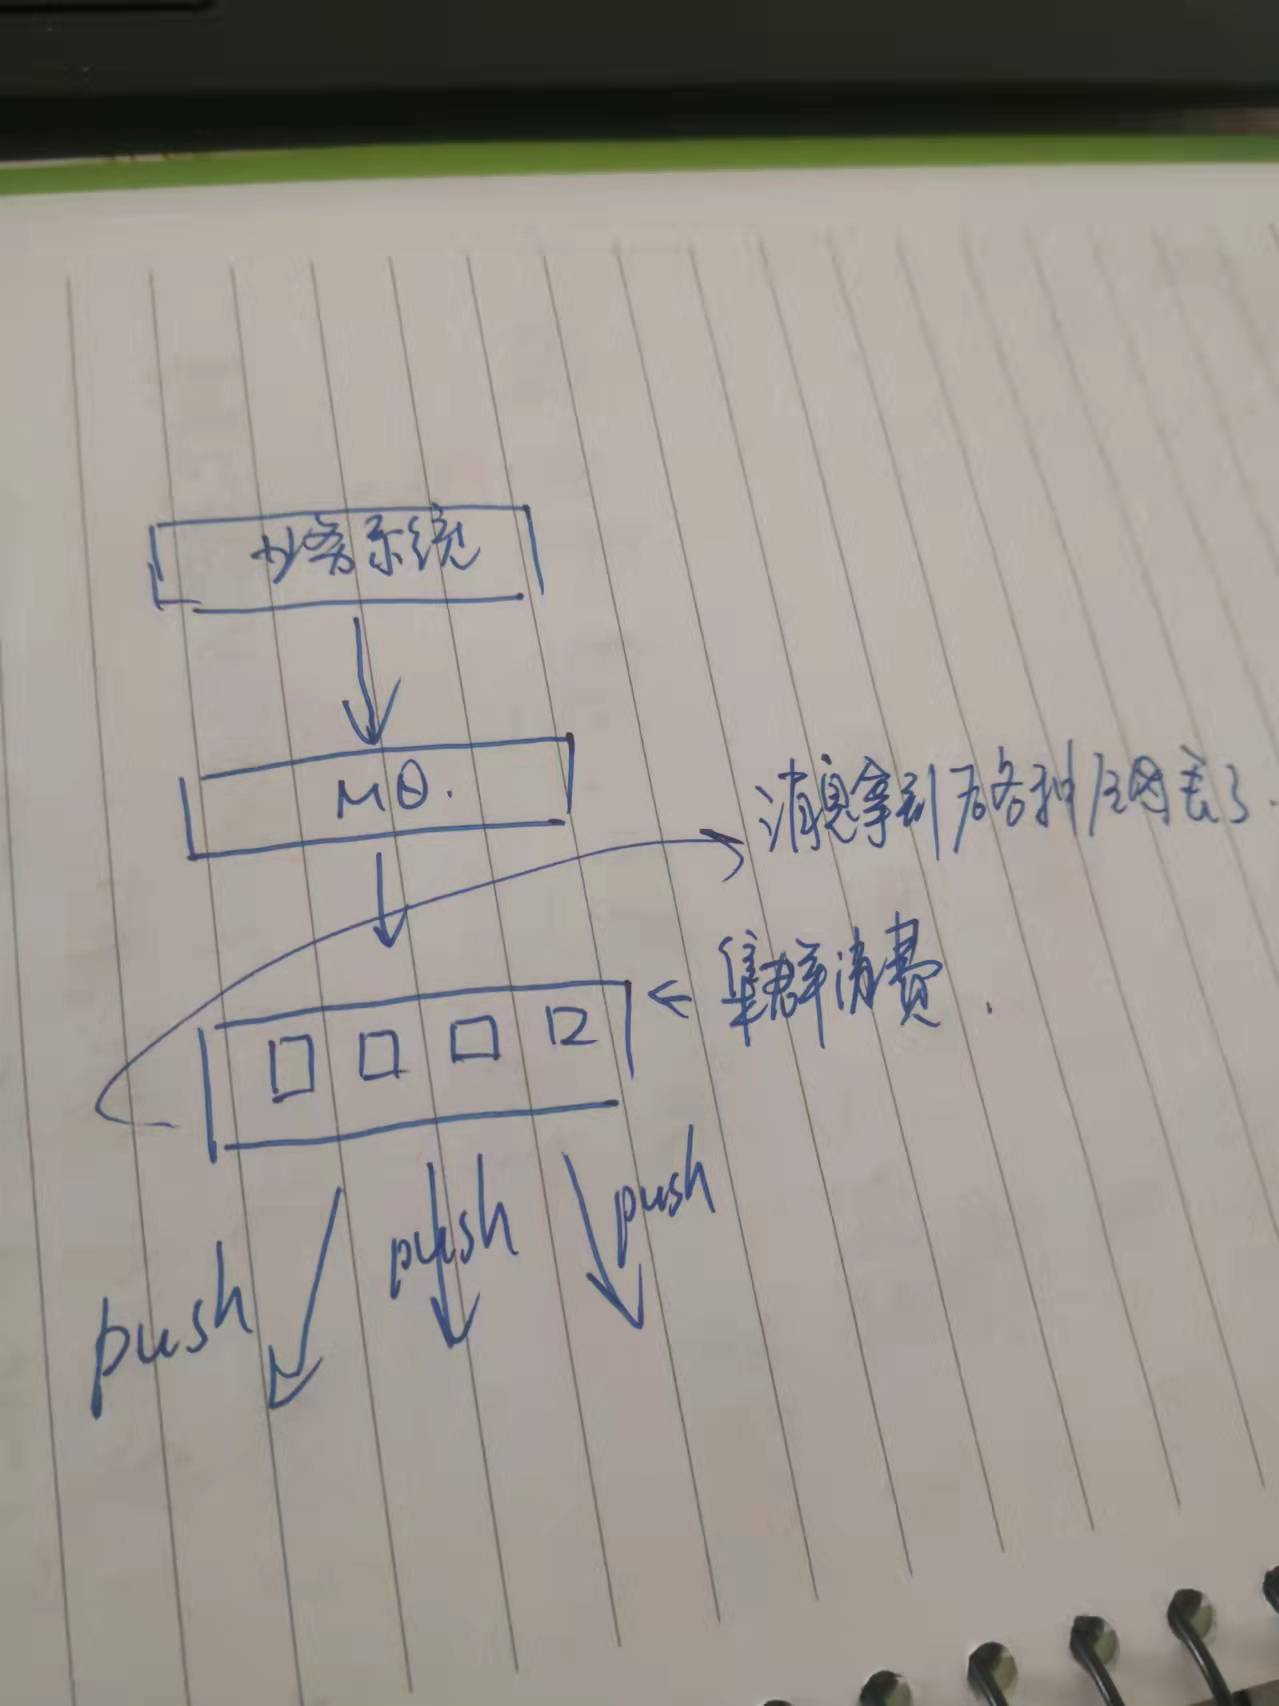 业务系统
MQ.
消息拿到后各种原因丢了.
集群消费.
push
push
push